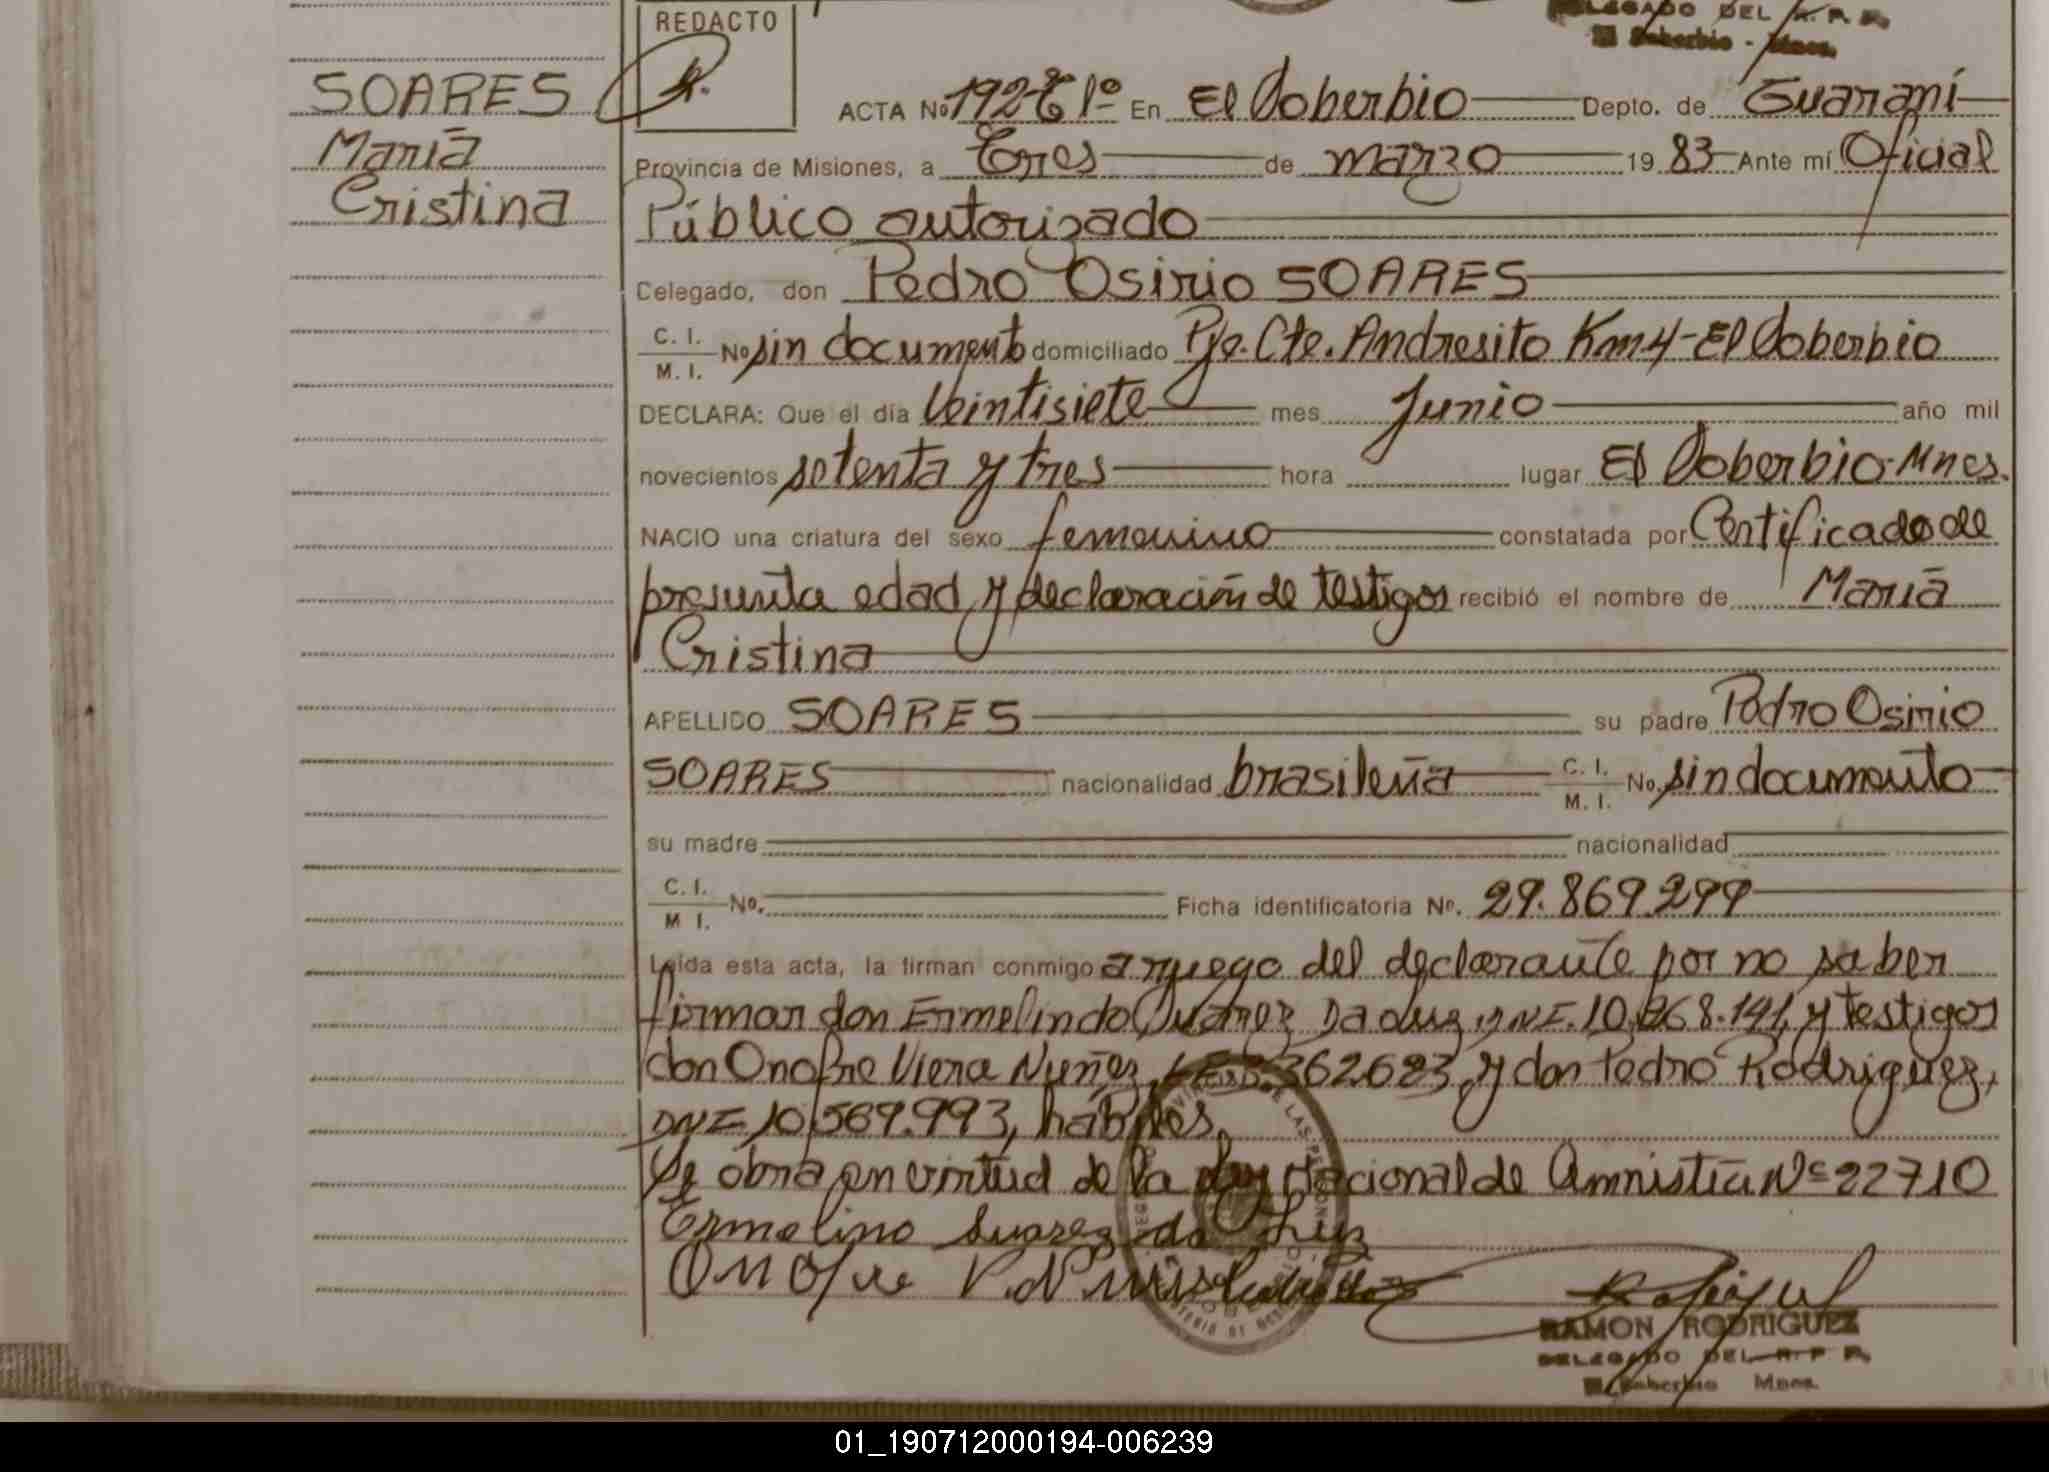 REDACTO
DELEGADO DEL R. P. P.
El Soberbio - Mnes.
SOARES
María
Cristina
ACTA No 192 - Tº 1º En El Soberbio Depto. de Guaraní
Provincia de Misiones, a Tres de marzo 19 83 Ante mí Oficial
Público autorizado
Celegado, don Pedro Osirio SOARES
C. I. / M. I. No sin documento domiciliado Pje. Cte. Andresito Km 4 - El Soberbio
DECLARA: Que el día Veintisiete mes Junio año mil
novecientos setenta y tres hora lugar El Soberbio - Mnes.
NACIO una criatura del sexo femenino constatada por Certificado de
presunta edad y declaración de testigos recibió el nombre de María
Cristina
APELLIDO SOARES su padre Pedro Osirio
SOARES nacionalidad brasileña C. I. / M. I. No. sin documento
su madre nacionalidad
C. I. / M I. No. Ficha identificatoria No. 29.869.299
Leída esta acta, la firman conmigo a ruego del declarante por no saber
firmar don Ermelindo Suarez Da Luz, DNI. 10.868.141, y testigos
don Onofre Viera Nuñez, LE 8.362.623, y don Pedro Rodriguez,
DNI. 10.569.993, hábiles.
Se obra en virtud de la Ley Nacional de Amnistía Nº 22710
Ermelino Suarez da Luz
Onofre V. N
RAMON RODRIGUEZ
DELEGADO DEL R. P. P.
El Soberbio Mnes.
01_190712000194-006239